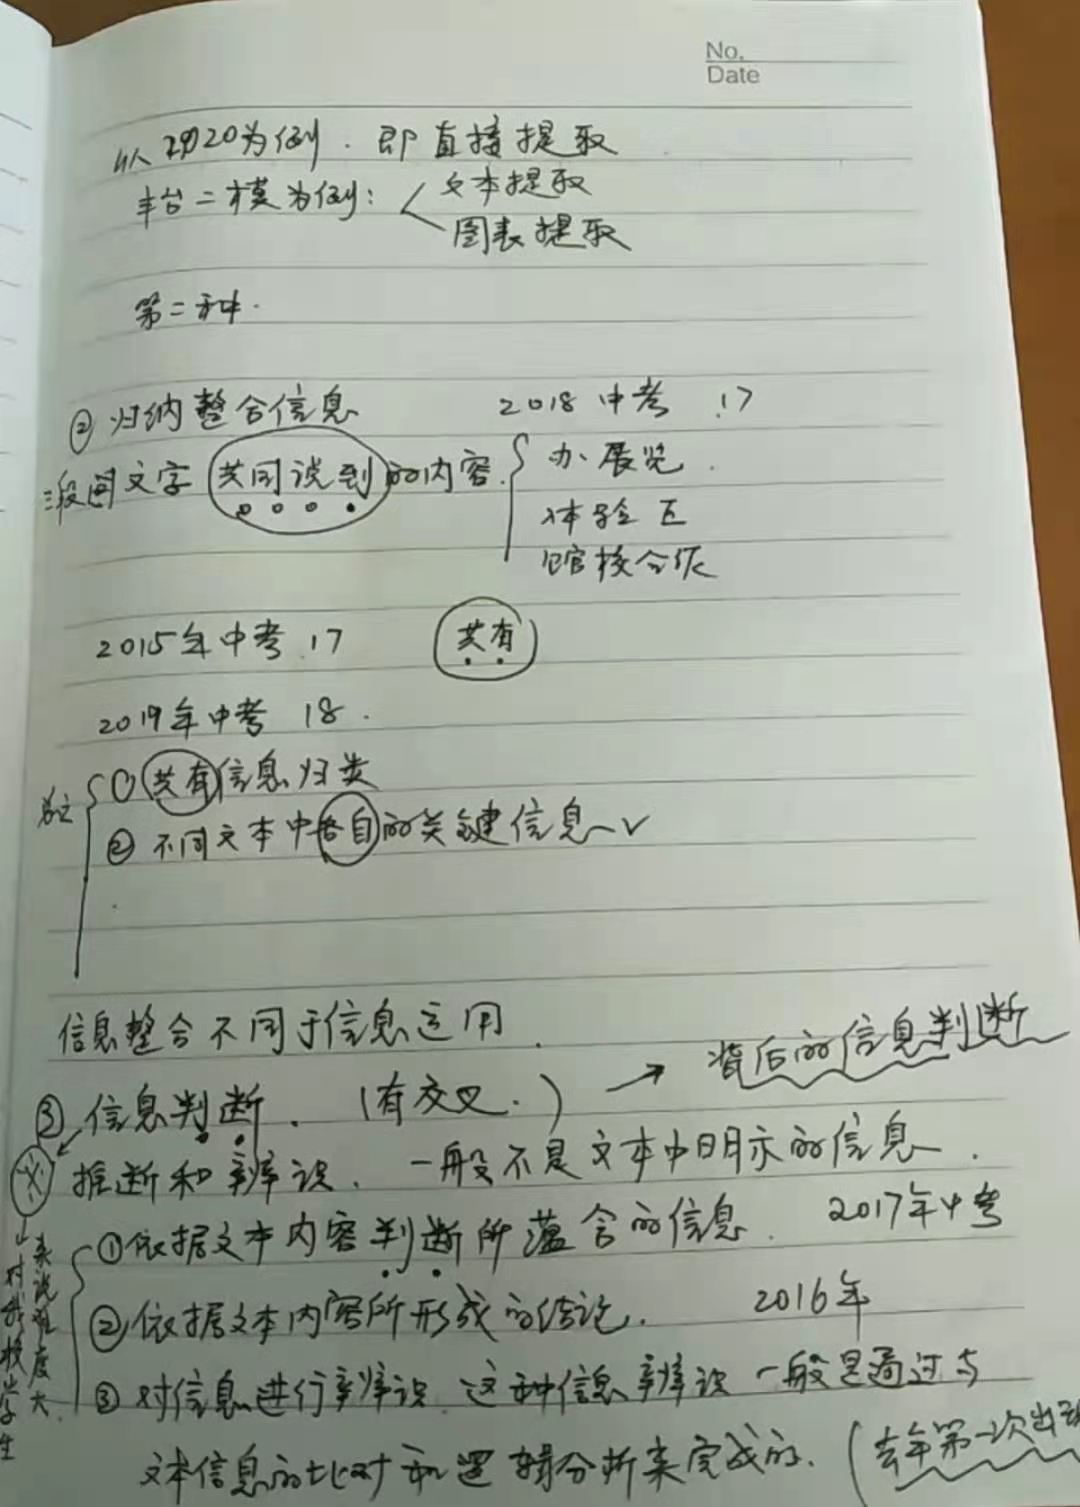 No.
Date
从2020为例．即直接提取
丰台二模为例：文本提取
图表提取
第二种．
② 归纳整合信息 2018中考 17
三段 文字共同说到的内容． 办展览．
体验区
馆校合作
2015年中考 17 共有
2019年中考 18．
①共有信息归类
②不同文本中各自的关键信息√
信息整合不同于信息运用．
③信息判断．（有交叉．）→ 背后的信息判断
推断和辨识．一般不是文本中明示的信息．
①依据文本内容判断所蕴含的信息． 2017年中考
②依据文本内容所形成的结论． 2016年
③对信息进行辨识．这种信息辨识一般是通过与
文本信息的比对和逻辑分析来完成的．（去年第一次出现
对我校学生
来说难度大．